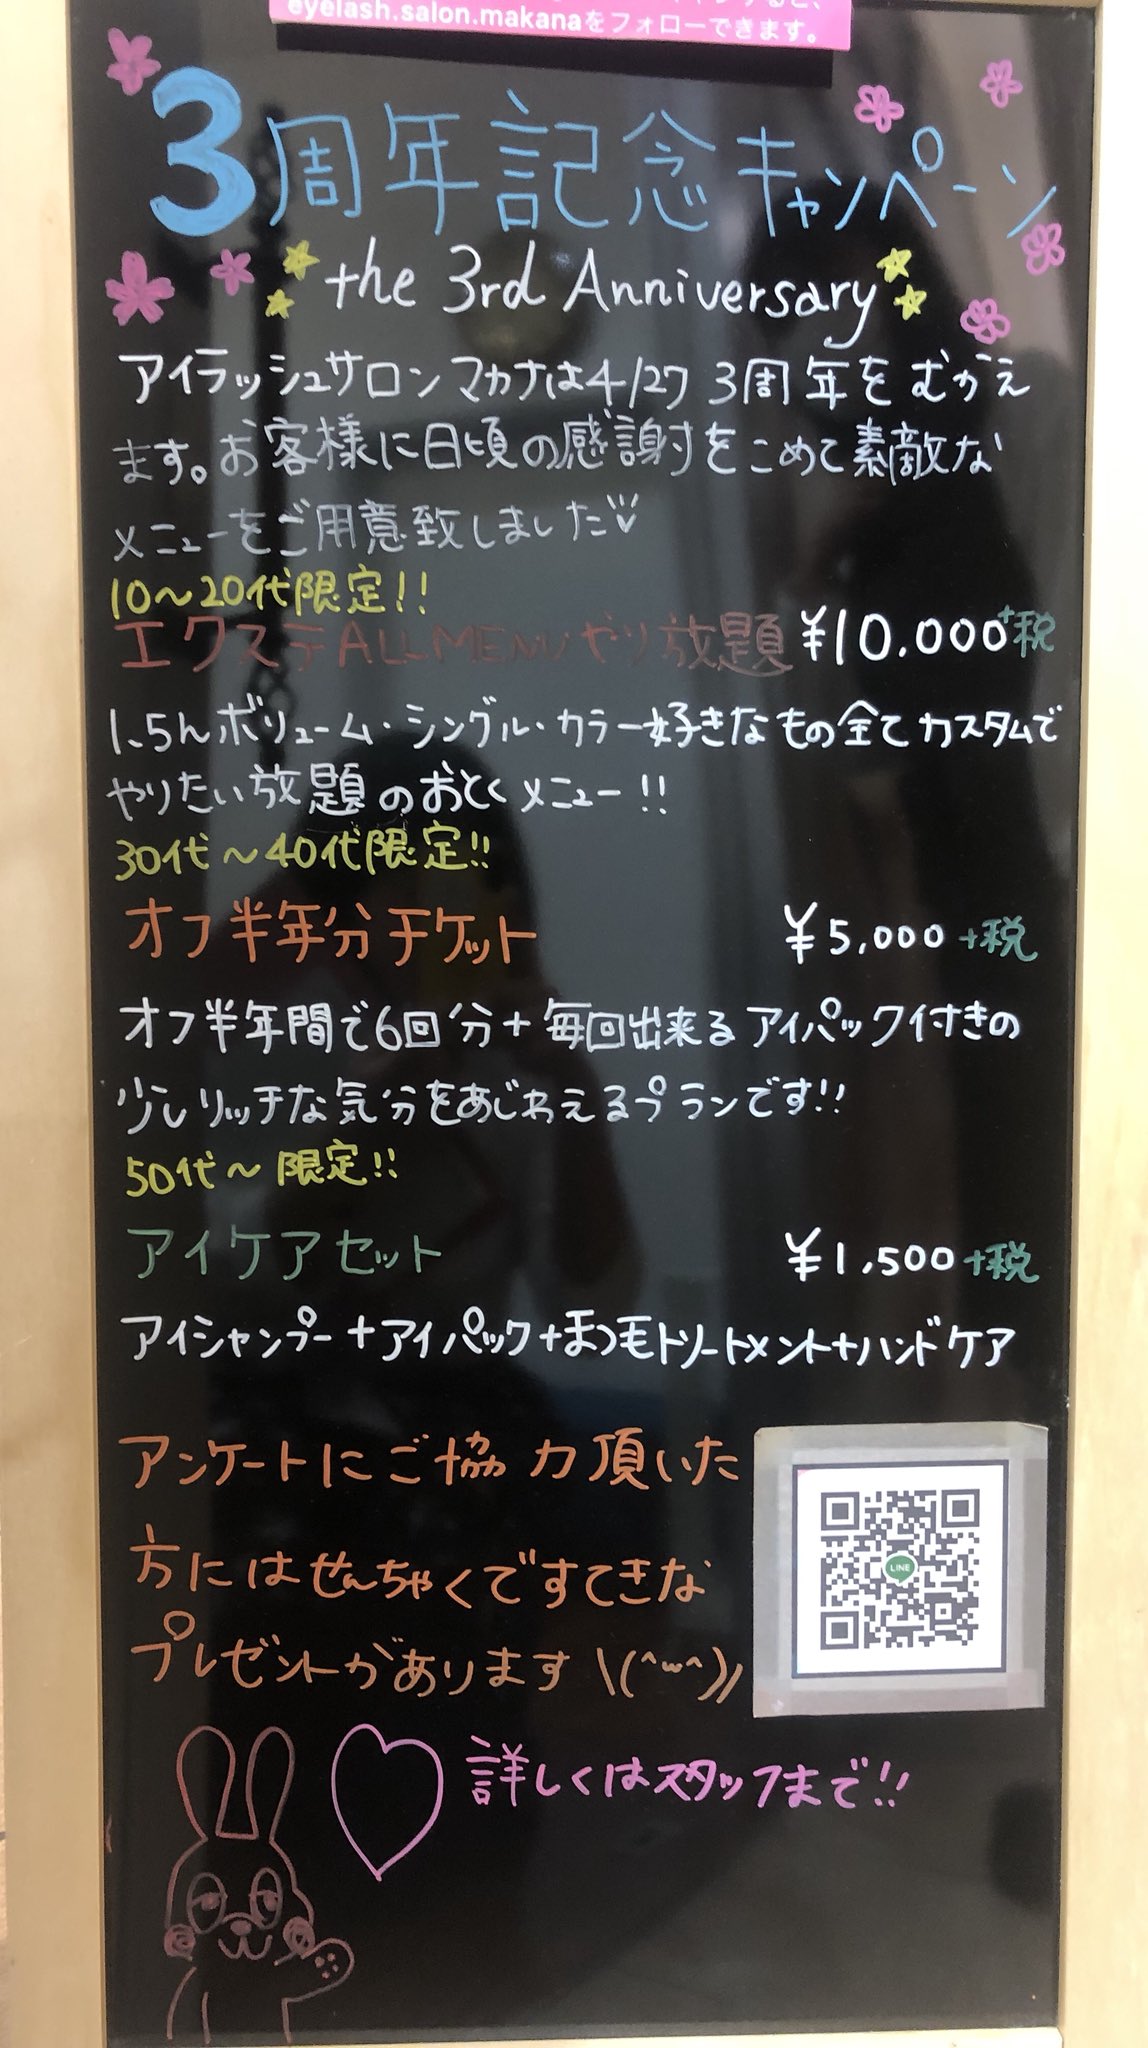 eyelash.salon.makanaをフォローできます。
3周年記念キャンペーン
the 3rd Anniversary
アイラッシュサロンマカナは4/27 3周年をむかえ
ます。お客様に日頃の感謝をこめて素敵な
メニューをご用意致しました
10～20代限定!!
エクステALLMENUやり放題 ¥10.000+税
1.5hボリューム・シングル・カラー好きなもの全てカスタムで
やりたい放題のおとくメニュー!!
30代～40代限定!!
オフ半年分チケット ¥5,000+税
オフ半年間で6回分+毎回出来るアイパック付きの
少しリッチな気分をあじわえるプランです!!
50代～限定!!
アイケアセット ¥1,500+税
アイシャンプー+アイパック+まつ毛トリートメント+ハンドケア
アンケートにご協力頂いた
方にはせんちゃくですてきな
プレゼントがあります \(^ω^)/
LINE
詳しくはスタッフまで!!